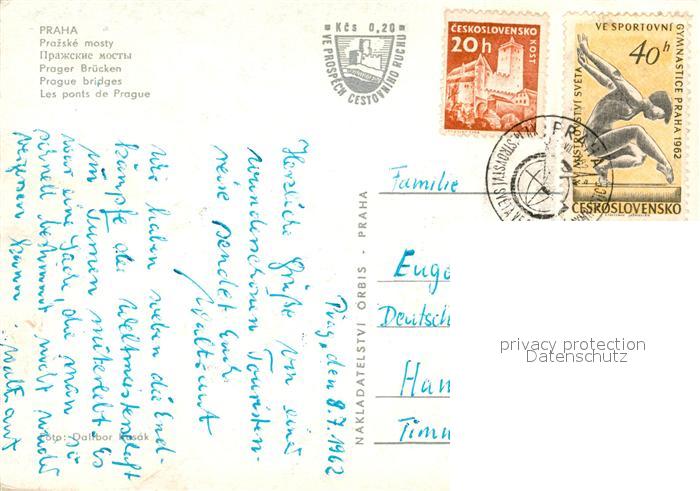 PRAHA
Pražské mosty
Пражские мосты
Prager Brücken
Prague bridges
Les ponts de Prague
Kčs 0,20
VE PROSPĚCH CESTOVNÍHO RUCHU
ČESKOSLOVENSKO
20h
KOST
VE SPORTOVNÍ
GYMNASTICE PRAHA 1962
XV. MISTROVSTVÍ SVĚTA
40h
ČESKOSLOVENSKO
PRAHA
Prag, den 8.7.1962
Herzliche Grüße von einer
wunderschönen Touristen-
reise sendet Euch
Waltraut
Wir haben soeben die End-
kämpfe der Weltmeisterschaft
im Turnen miterlebt. Es
war eine Sache, die man so
schnell bestimmt nicht wieder
vergessen kann. Waltraut
Foto: Dalibor Kusák
NAKLADATELSTVÍ ORBIS - PRAHA
Familie
Euge
Deutsch
Han
Timu
privacy protection
Datenschutz